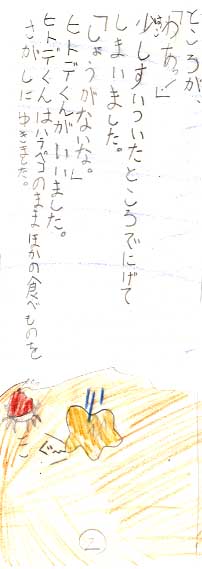 ところが、
「わあっ!」
少しすいついたところでにげて
しまいました。
「しょうがないな。」
ヒトデくんがいいました。
ヒトデくんはハラペコのままほかの食べものを
さがしにゆきました。
ぐ〜
2